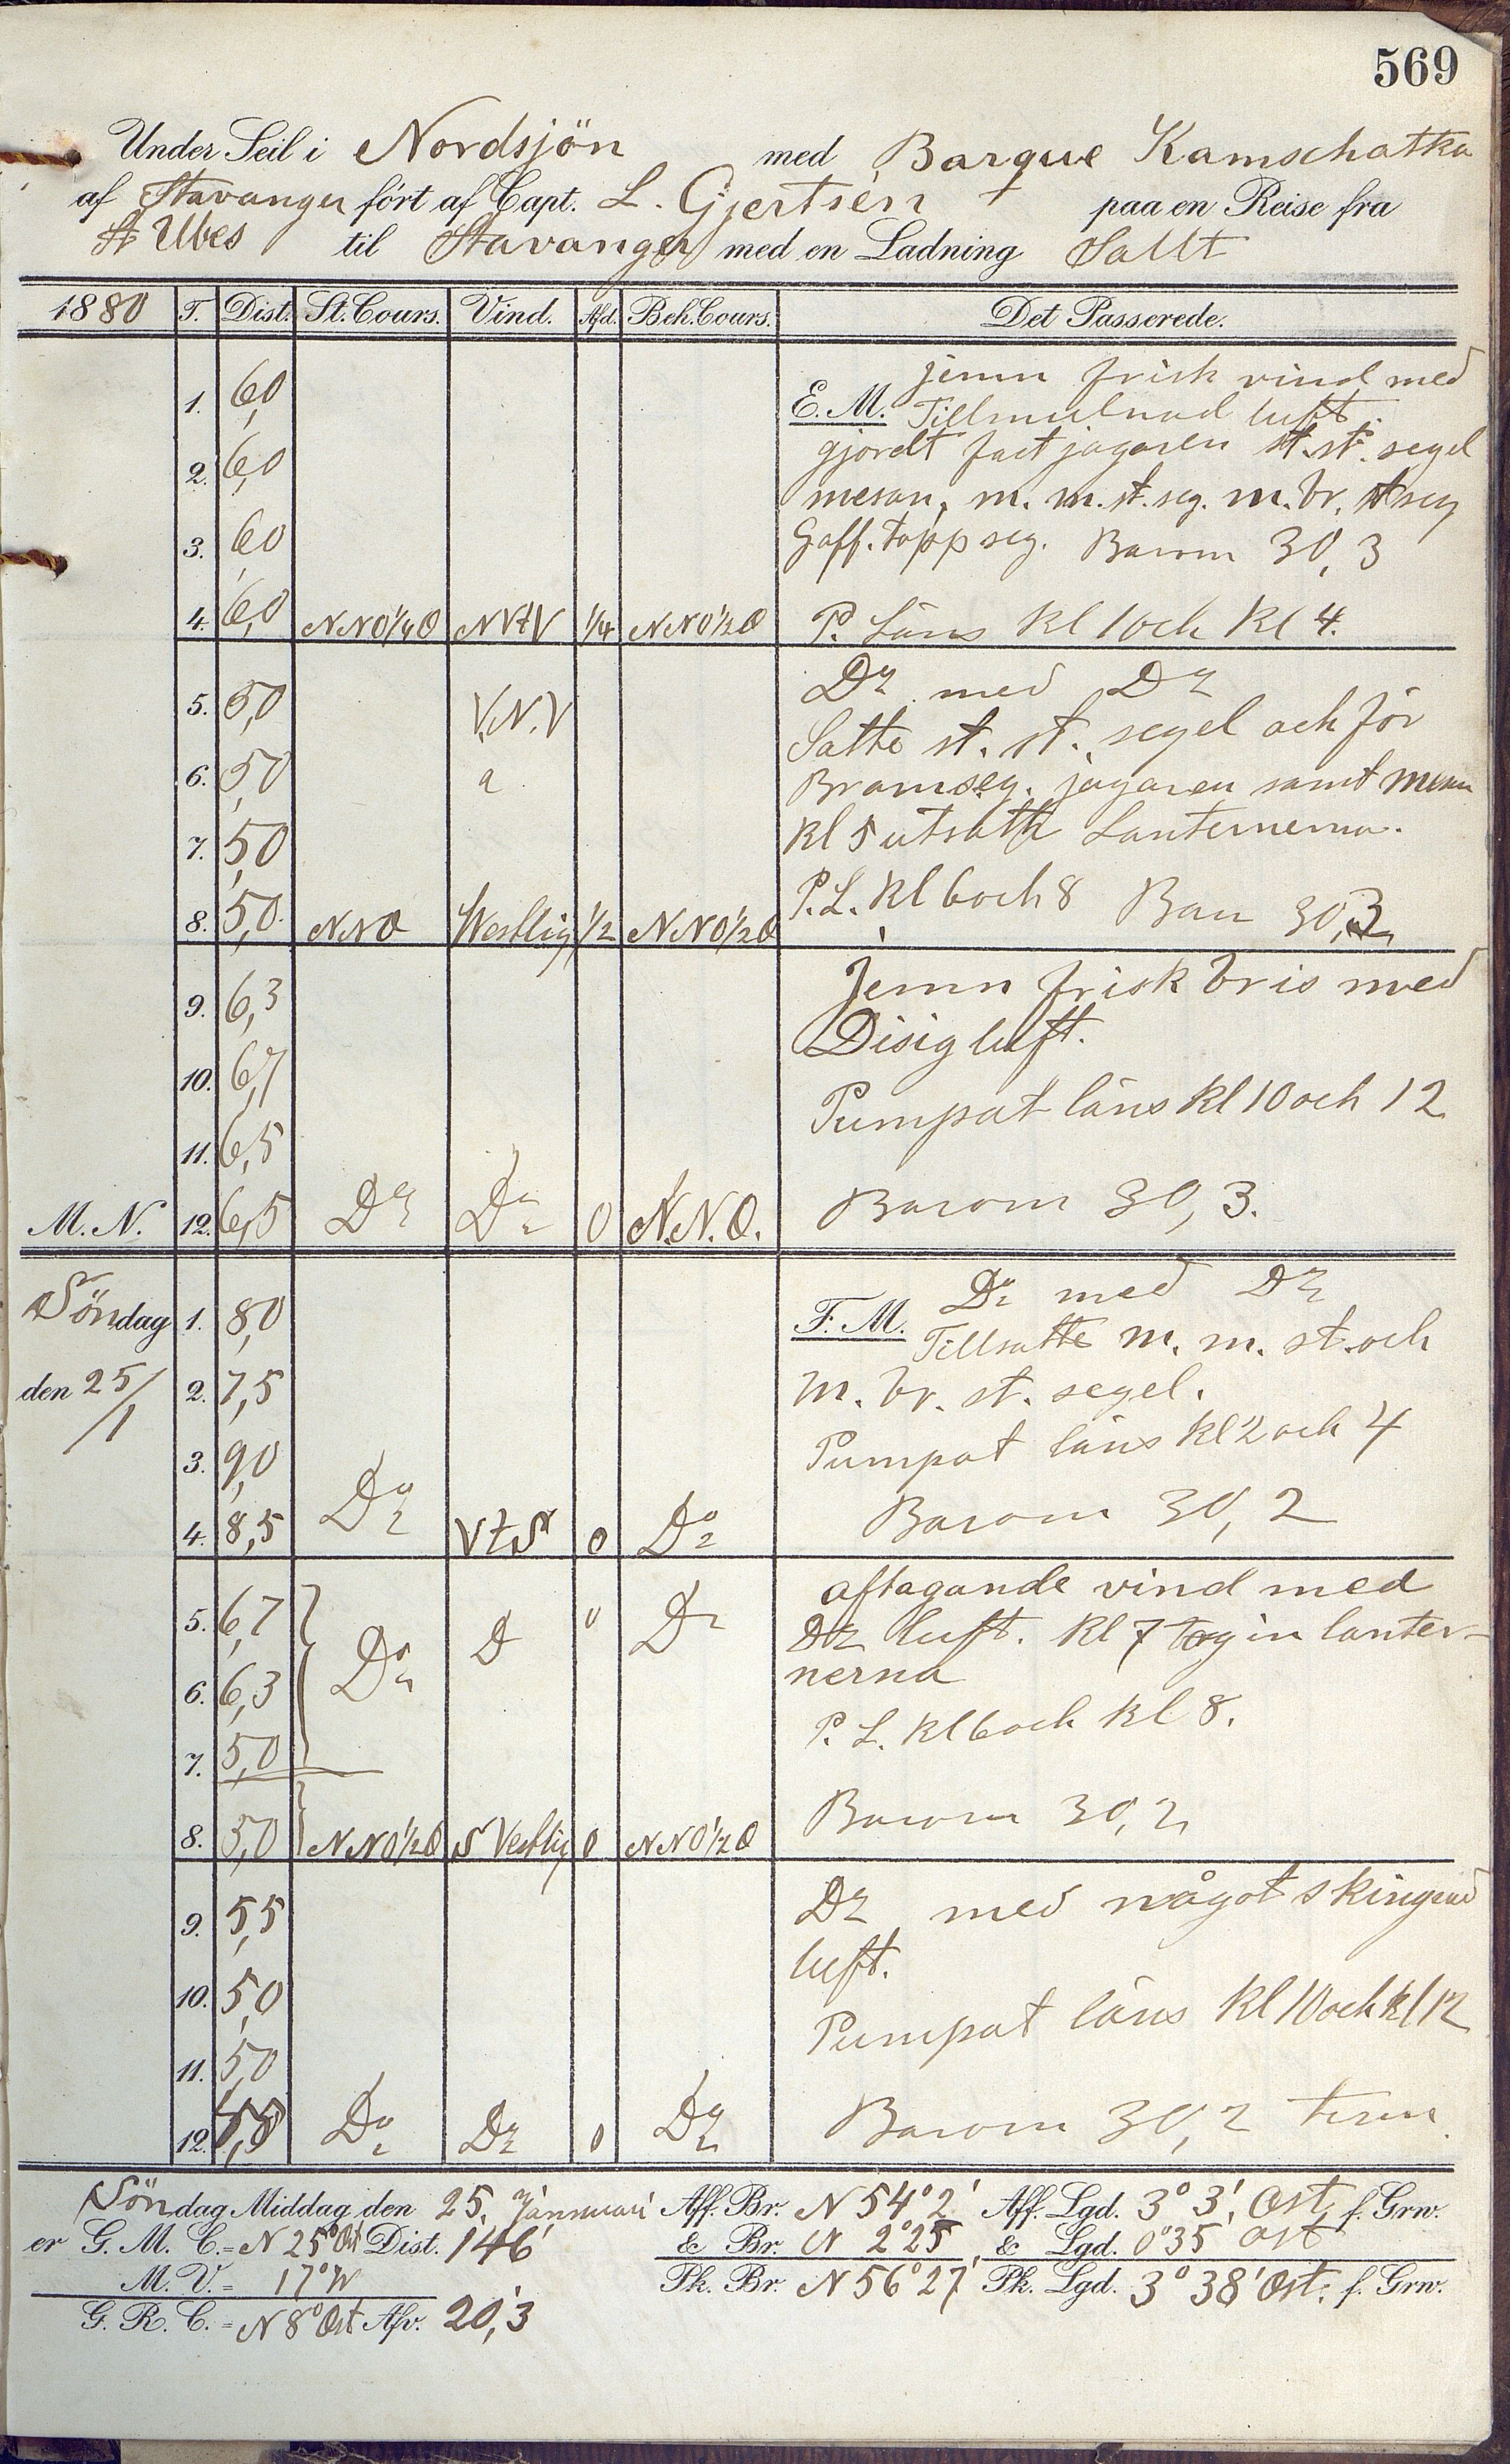 569
Under Seil i Nordsjön med Barque Kamschatka
af Stavanger fört af Capt. L. Gjertsen paa en Reise fra
St Ubes til Stavanger med en Ladning Sallt
1880 T. Dist. St. Cours. Vind. Afd. Beh. Cours. Det Passerede.
jemn frisk vind med
1. 6,0 E. M. Tillmulnad luft.
gjordt fast jagaren st. st. segel
2. 6,0
mesan, m. m. st. seg. m. br. st seg
3. 6,0 Gaff. topp seg. Barom 30,3
4. 6,0 NNO1/4O NVtV 1/4 NNO1/2O P. Läns Kl 1 och Kl 4.
5. 5,0 V.N.V Do med Do
Satte st. st. segel och för
6. 5,0 Bramseg. jagaren samt mesan
7. 5,0 Kl 5 utsatte Lanternerna.
8. 5,0 NNO Westlig 1/2 NNO1/2O P. L. Kl 6 och 8 Bar 30,3
9. 6,3 Jemn frisk bris med
Disig luft.
10. 6,7
Pumpat läns Kl 10 och 12
11. 6,5
M. N. 12. 6,5 Do Do 0 N.N.O. Barom 30,3.
Do med Do
Söndag 1. 8,0 F. M. Tillsatte m. m. st. och
den 25/1 2. 7,5 m. br. st. segel.
3. 9,0 Pumpat läns Kl 2 och 4
4. 8,5 Do VtS 0 Do Barom 30,2
aftagande vind med
5. 6,7 Do D 0 Do Do luft. Kl 7 tog in lanter-
6. 6,3 nerna
P. L. Kl 6 och Kl 8.
7. 5,0
8. 5,0 NNO1/2O S Vestlig 0 NNO1/2O Barom 30,2
9. 5,5 Do med något skingrad
luft.
10. 5,0
Pumpat läns Kl 10 och Kl 12
11. 5,0
12. Do Do 0 Do Barom 30,2
Söndag Middag den 25. Januari Aff. Br. N 54°2' Aff. Lgd. 3° 3' Ost, f. Grw.
er G. M. C.= N 25° Ost Dist. 146 & Br. N 2°25' & Lgd. 0°35' Ost
M. V.= 17°W Pk. Br. N 56°27' Pk. Lgd. 3° 38' Ost. f. Grw.
G. R. C.= N 8° Ost Afv. 20,3